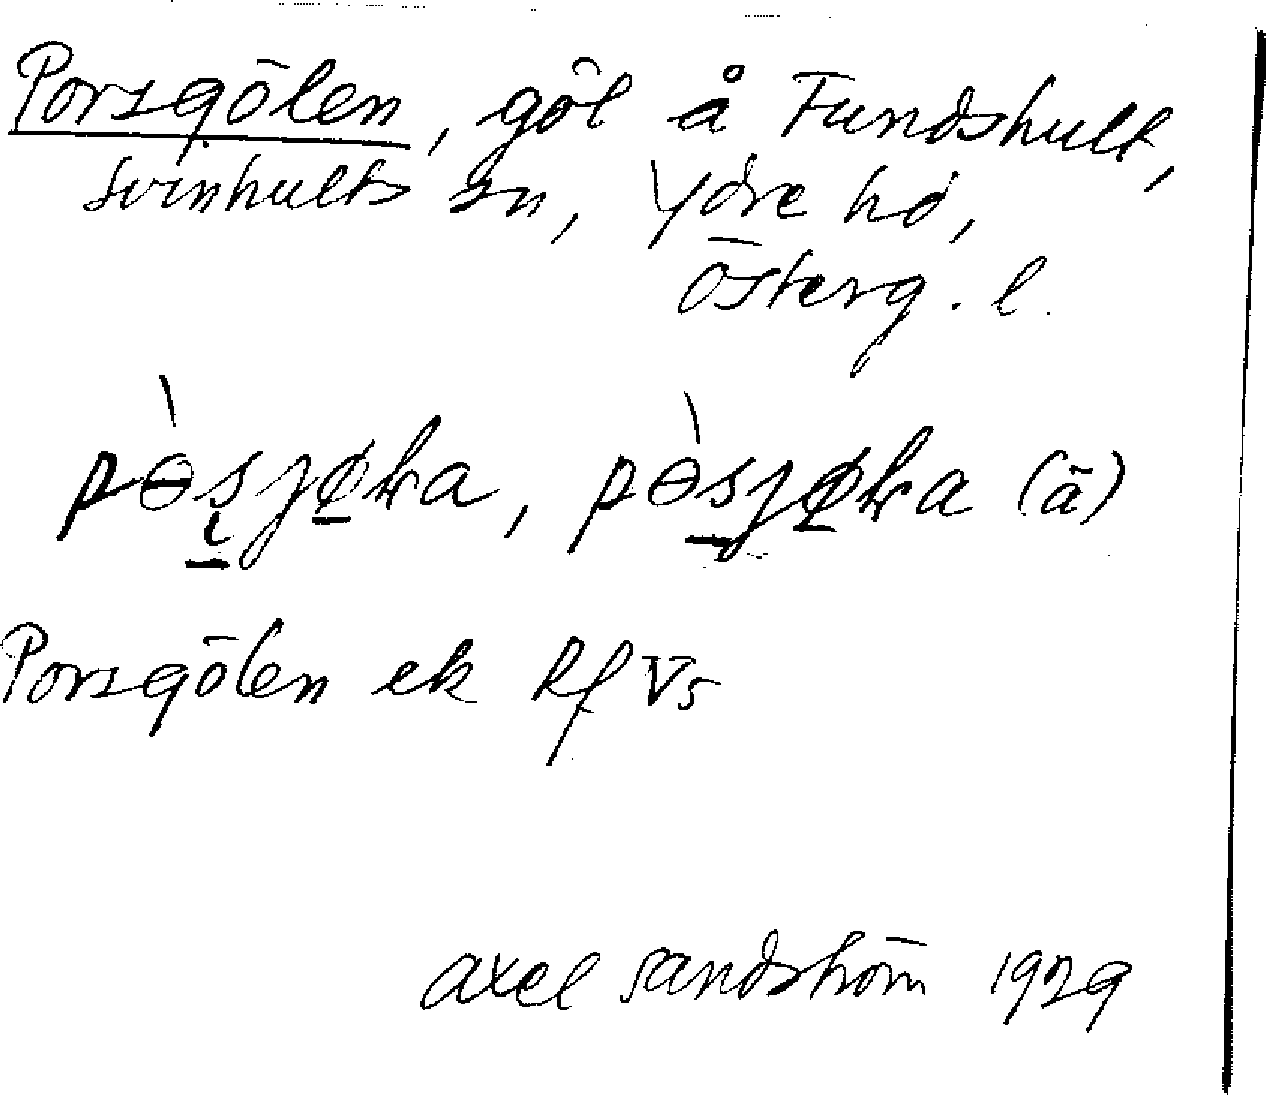 Porsgölen, göl å Fundshult,
Svinhults sn, Ydre hd,
Österg. l.
pòsjøka, pòsjøka (ā)
Porsgölen ek Rf V5
Axel Sandström 1929